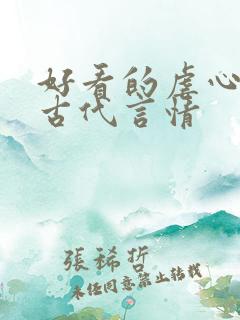 好看的虐心
古代言情
張稀哲
未经同意禁止转载